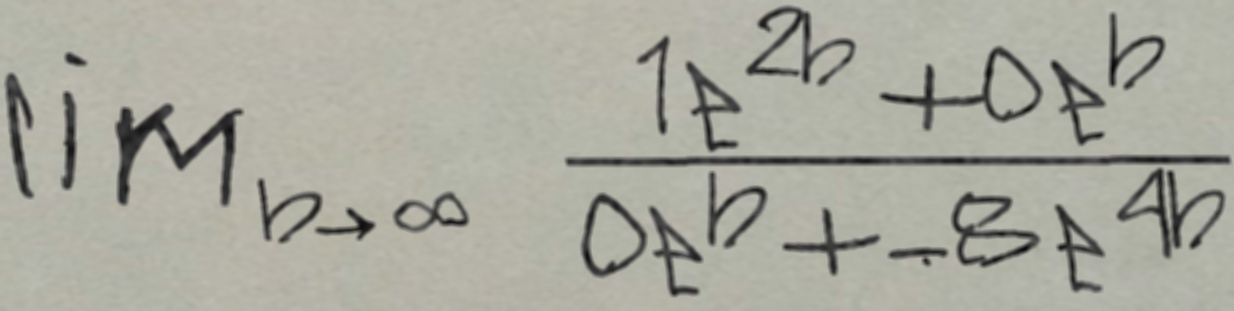 \lim_{b \to \infty} \frac{1e^{2b} + 0e^{b}}{0e^{b} + -8e^{4b}}